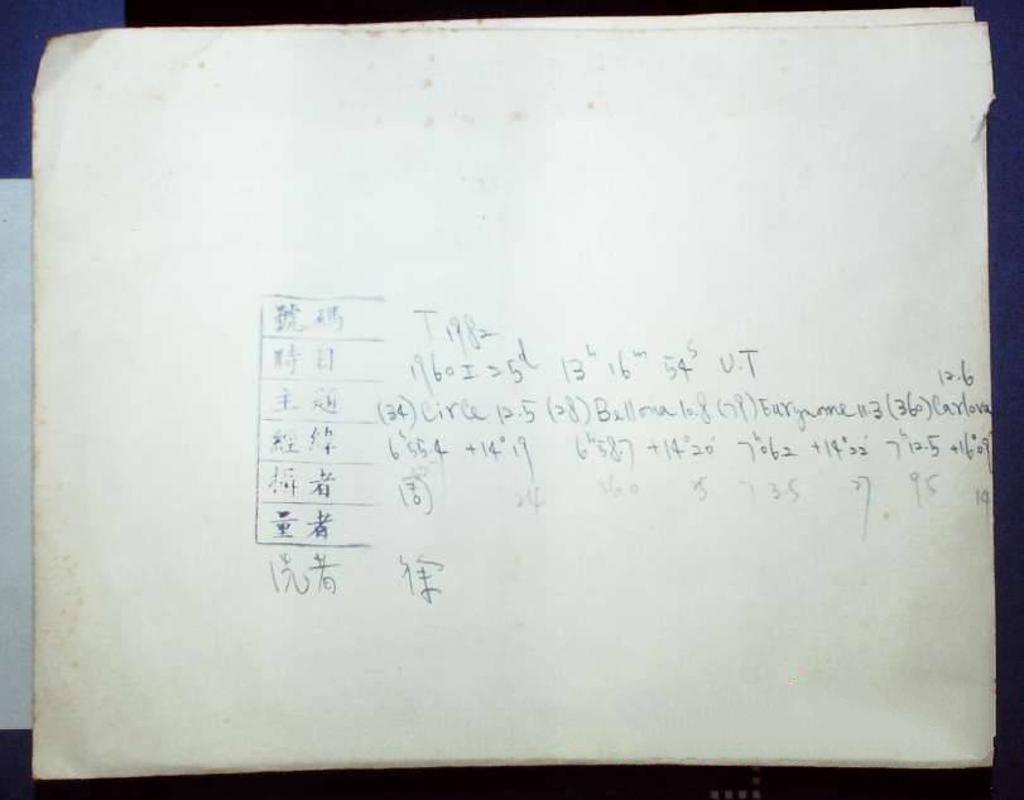 號碼 T 1982
時日 1960 I 25ᵈ 13ʰ 16ᵐ 54ˢ U.T
12.6
主題 (34) Circe 12.5 (28) Bellona 10.8 (79) Eurynome 11.3 (360) Carlova
經緯 6ʰ55.4 +14°19 6ʰ58.7 +14°20' 7ʰ06.2 +14°22' 7ʰ12.5 +16°09'
攝者 周 24 56.0 25 7 3.5 27 9.5 14
量者
洗者 徐